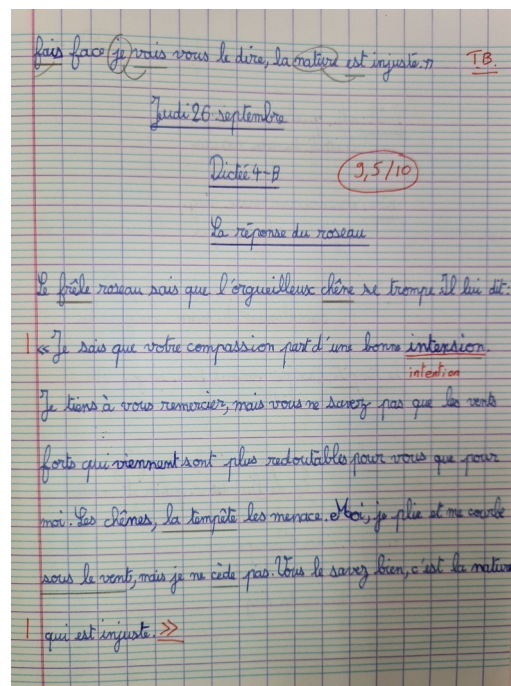 fais face je vais vous le dire, la nature est injuste. » TB.
Jeudi 26 septembre
Dictée 4-B 9,5/10
La réponse du roseau
Le frêle roseau sais que l'orgueilleux chêne se trompe Il lui dit:
1 « Je sais que votre compassion part d'une bonne intension.
intention
Je tiens à vous remercier, mais vous ne savez pas que les vents
forts qui viennent sont plus redoutables pour vous que pour
moi. Les chênes, la tempête les menace. Moi, je plie et me courbe
sous le vent, mais je ne cède pas. Vous le savez bien, c'est la nature
1 qui est injuste. »